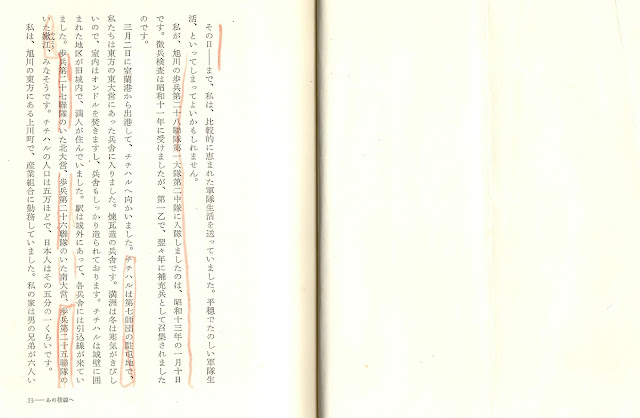 その日――まで、私は、比較的に恵まれた軍隊生活を送っていました。平穏でたのしい軍隊生
活、といってしまってよいかもしれません。
私が、旭川の歩兵第二十八聯隊第一大隊第二中隊に入隊しましたのは、昭和十三年の一月十日
です。徴兵検査は昭和十一年に受けましたが、第一乙で、翌々年に補充兵として召集されました
のです。
三月二日に室蘭港から出港して、チチハルへ向かいました。チチハルは第七師団の駐屯地で、
私たちは東方の東大営にあった兵舎に入りました。煉瓦造の兵舎です。満洲は冬は寒気がきびし
いので、室内はオンドルを焚きますし、兵舎もしっかり造られております。チチハルは城壁に囲
まれた地区が旧城内で、満人が住んでいました。駅は城外にあって、各兵舎には引込線が来てい
ました。歩兵第二十七聯隊のいた北大営、歩兵第二十六聯隊のいた南大営、歩兵第二十五聯隊の
いた嫩江、みなそうです。チチハルの人口は五万ほどで、日本人はその五分の一くらいです。
私は、旭川の東方にある上川町で、産業組合に勤務していました。私の家は男の兄弟が六人い
23――あの稜線へ